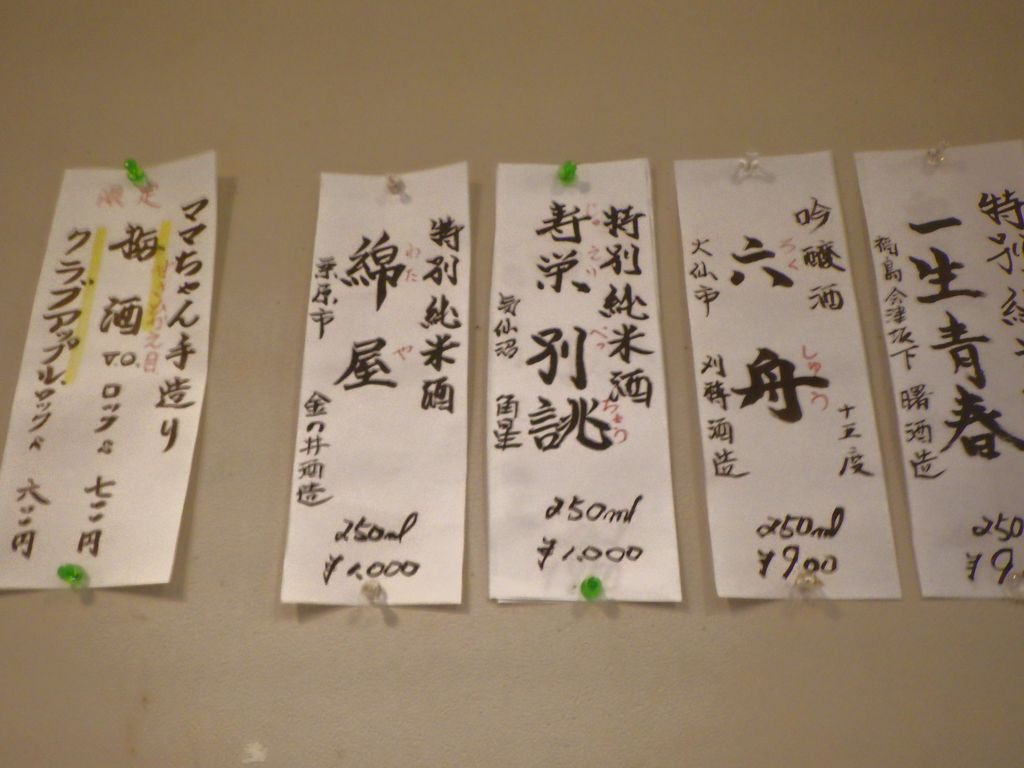 限定
ママちゃん手造り
梅酒 ロック 七〇〇円
クラブアップル ロック 六〇〇円
特別純米酒
綿屋
わた
や
栗原市 金の井酒造
250ml
¥1,000
特別純米酒
寿栄 別誂
じゅ えい べっ ちょう
気仙沼 角星
250ml
¥1,000
吟醸酒 十五度
六舟
ろく
しゅう
大仙市 刈穂酒造
250ml
¥900
特別純
一生青春
福島会津坂下 曙酒造
250
¥9